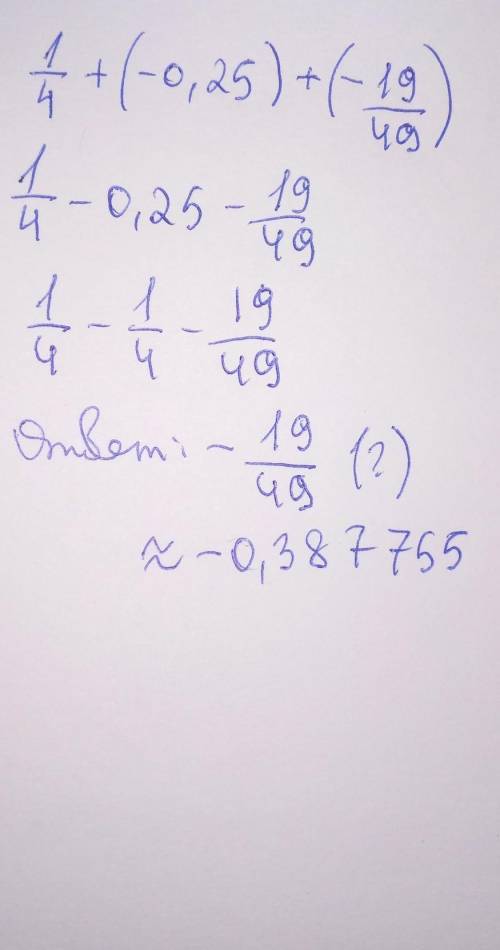 1/4 + (-0,25) + (-19/49)
1/4 - 0,25 - 19/49
1/4 - 1/4 - 19/49
Ответ: - 19/49 (?)
≈ -0,387755